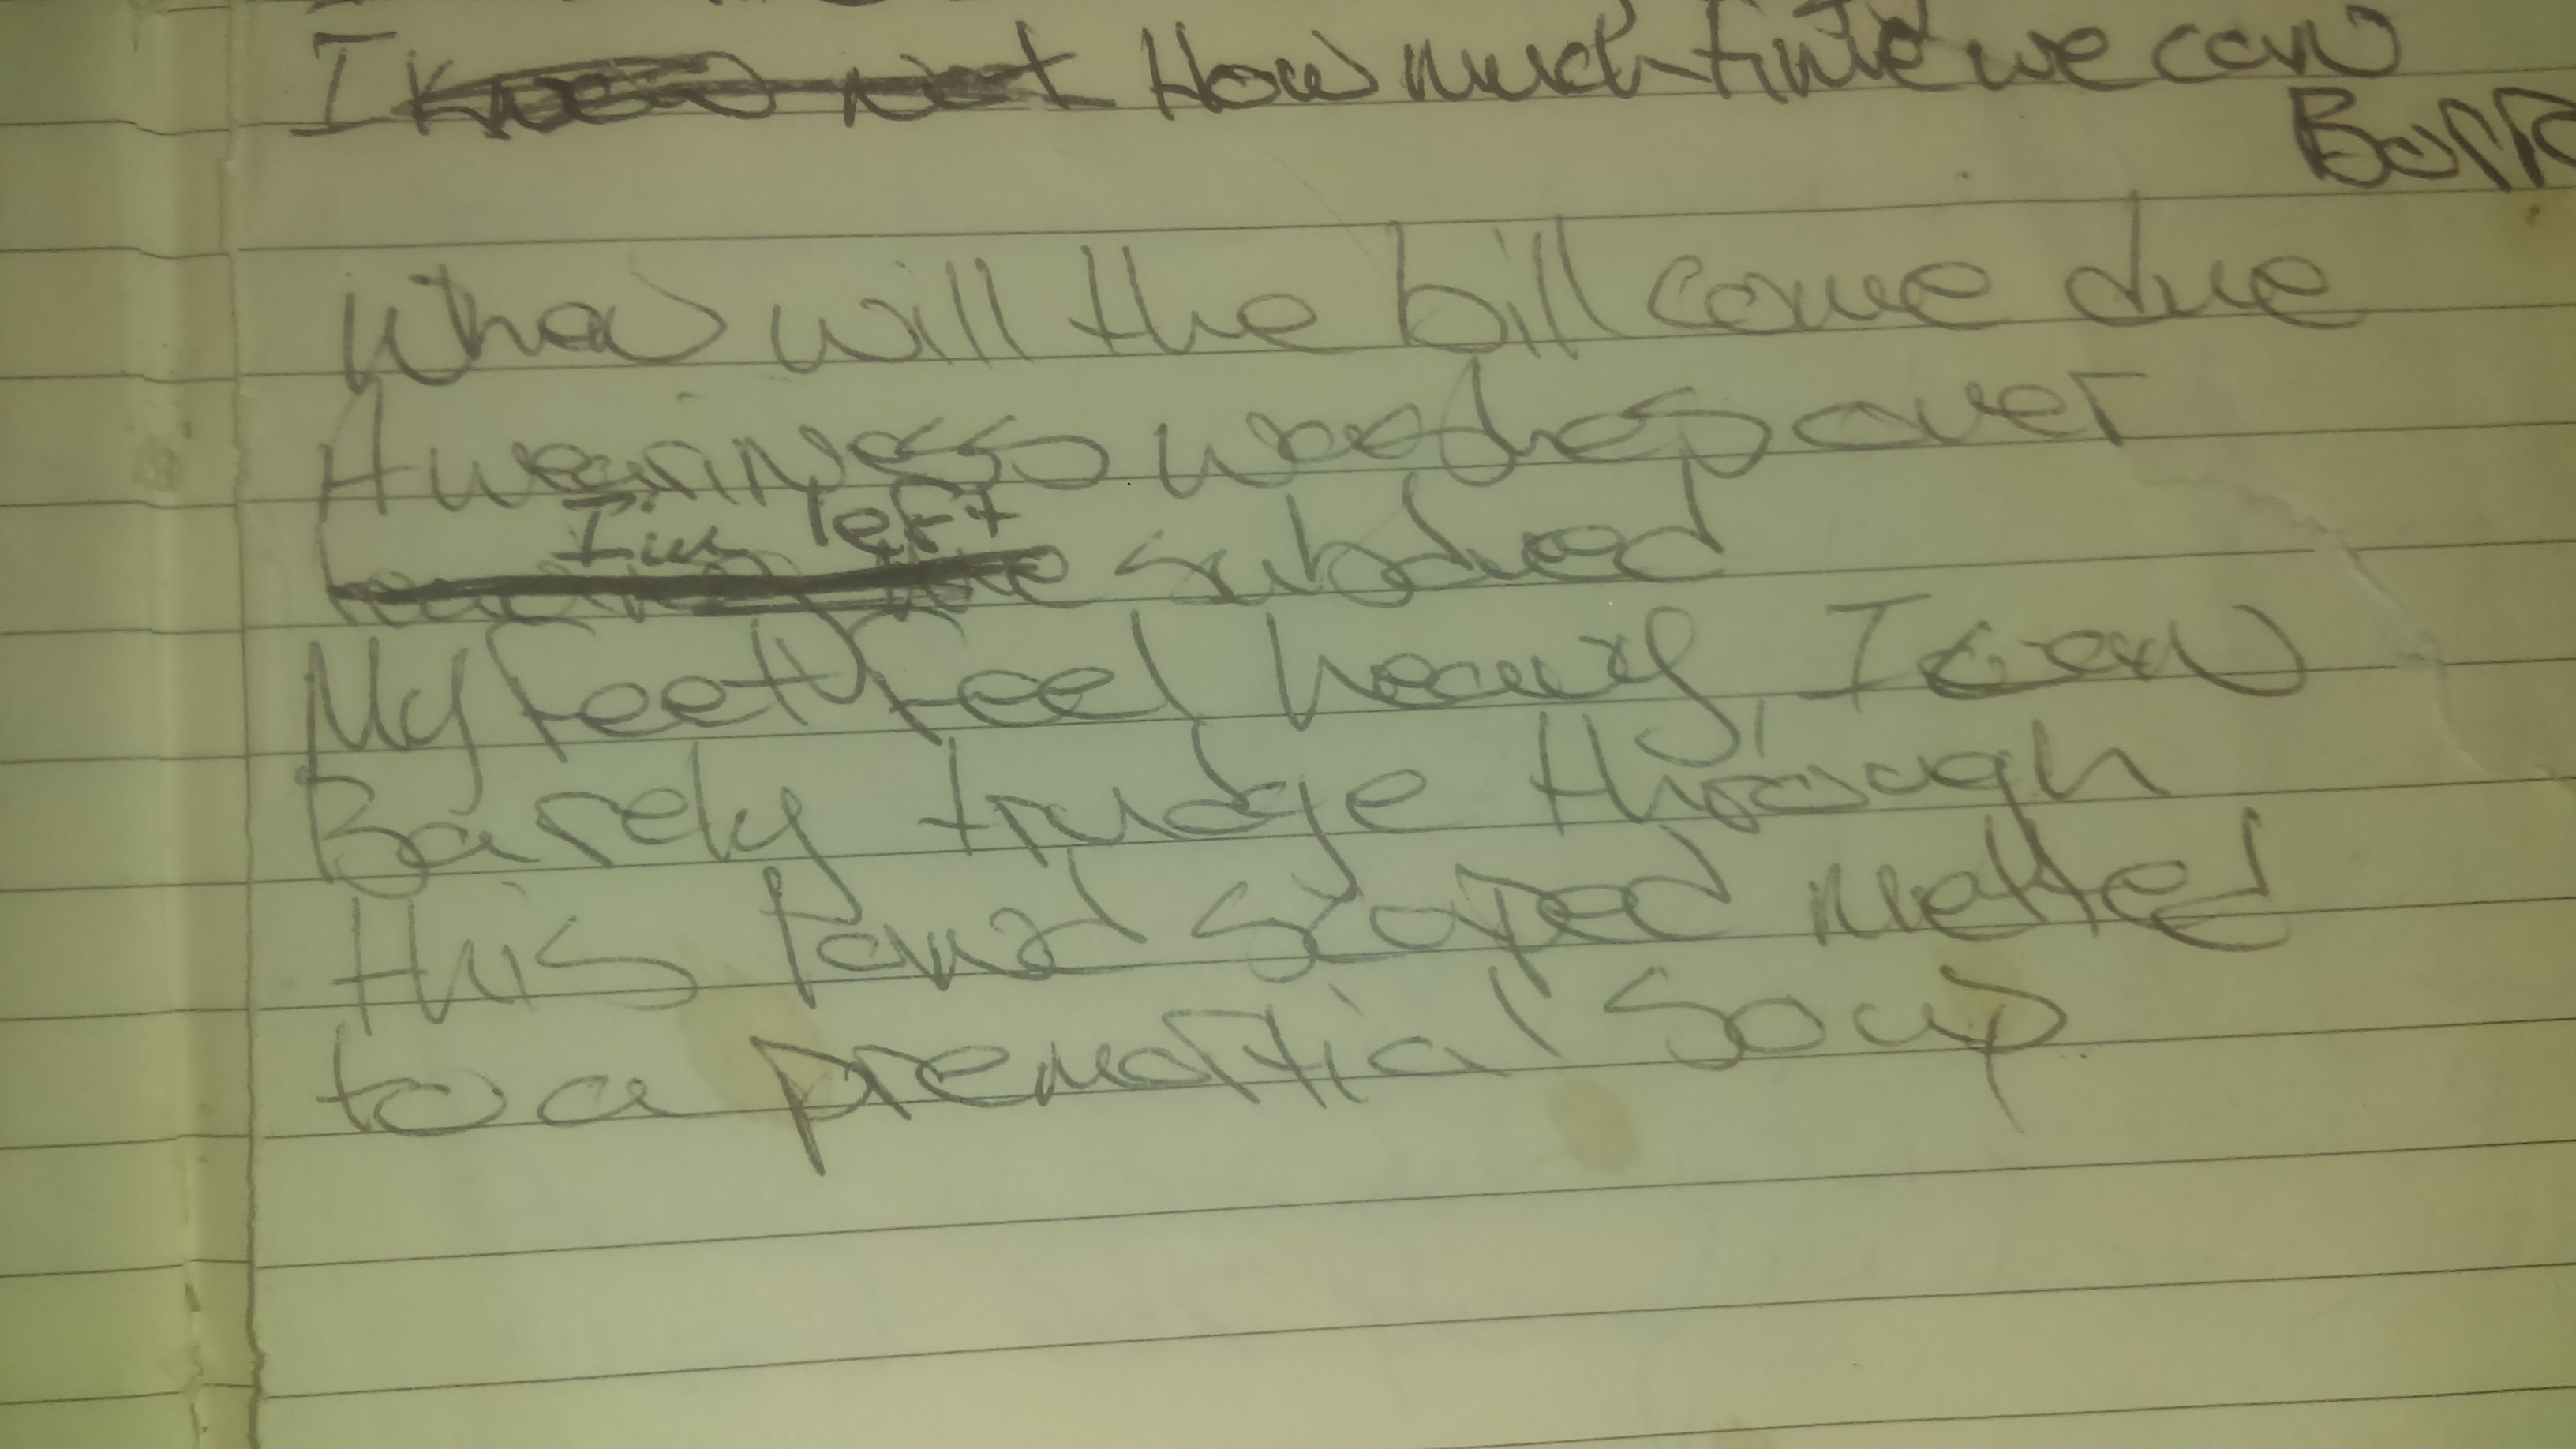 I know not How much time we can
Borro
When will the bill come due
A weariness washes over
I'm left
leaving me subdued
My feet feel heavy, I can
Barely trudge through
this land sloped melted
to a premortial soup